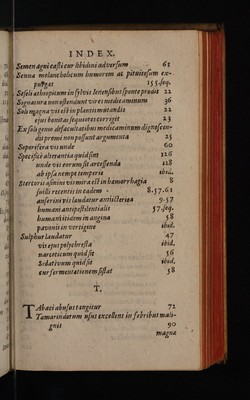 INDEX.
Semen agni casti cur libidini adversum 63
Senna melancholicum humorem ac pituitosum ex-
purget 155. seq.
Seseli æthiopicum in sylvis Ienensibus sponte prodit 22
Signatura non ostendunt vires medicaminum 36
Soli magna vis est in plantis mutandis 22
ejus bonitas sequiores corrigit 23
Ex solo genio de facultatibus medicaminum dignoscen-
dis promi non possunt argumenta 25
Soporifera vis unde 60
Specifica alterantia quid sint 126
unde vis eorum sit arcessenda 128
ab ipsa nempe temperie ibid.
Stercoris asinini vis mira est in hæmorrhagia 8
suilli recentis in eadem 8.57.61
anserini vis laudatur antiicterica 9.57
humani antipestilentialis 57. seq.
humani itidem in angina 58
pavonis in vertigine ibid.
Sulphur laudatur 47
vis ejus polychresta ibid.
narcoticum quid sit 56
Sedativum quid sit ibid.
cur fermentationem sistat 58
T.
Tabaci abusus tangitur 72
Tamarindorum usus excellens in febribus mali-
gnis 90
magna